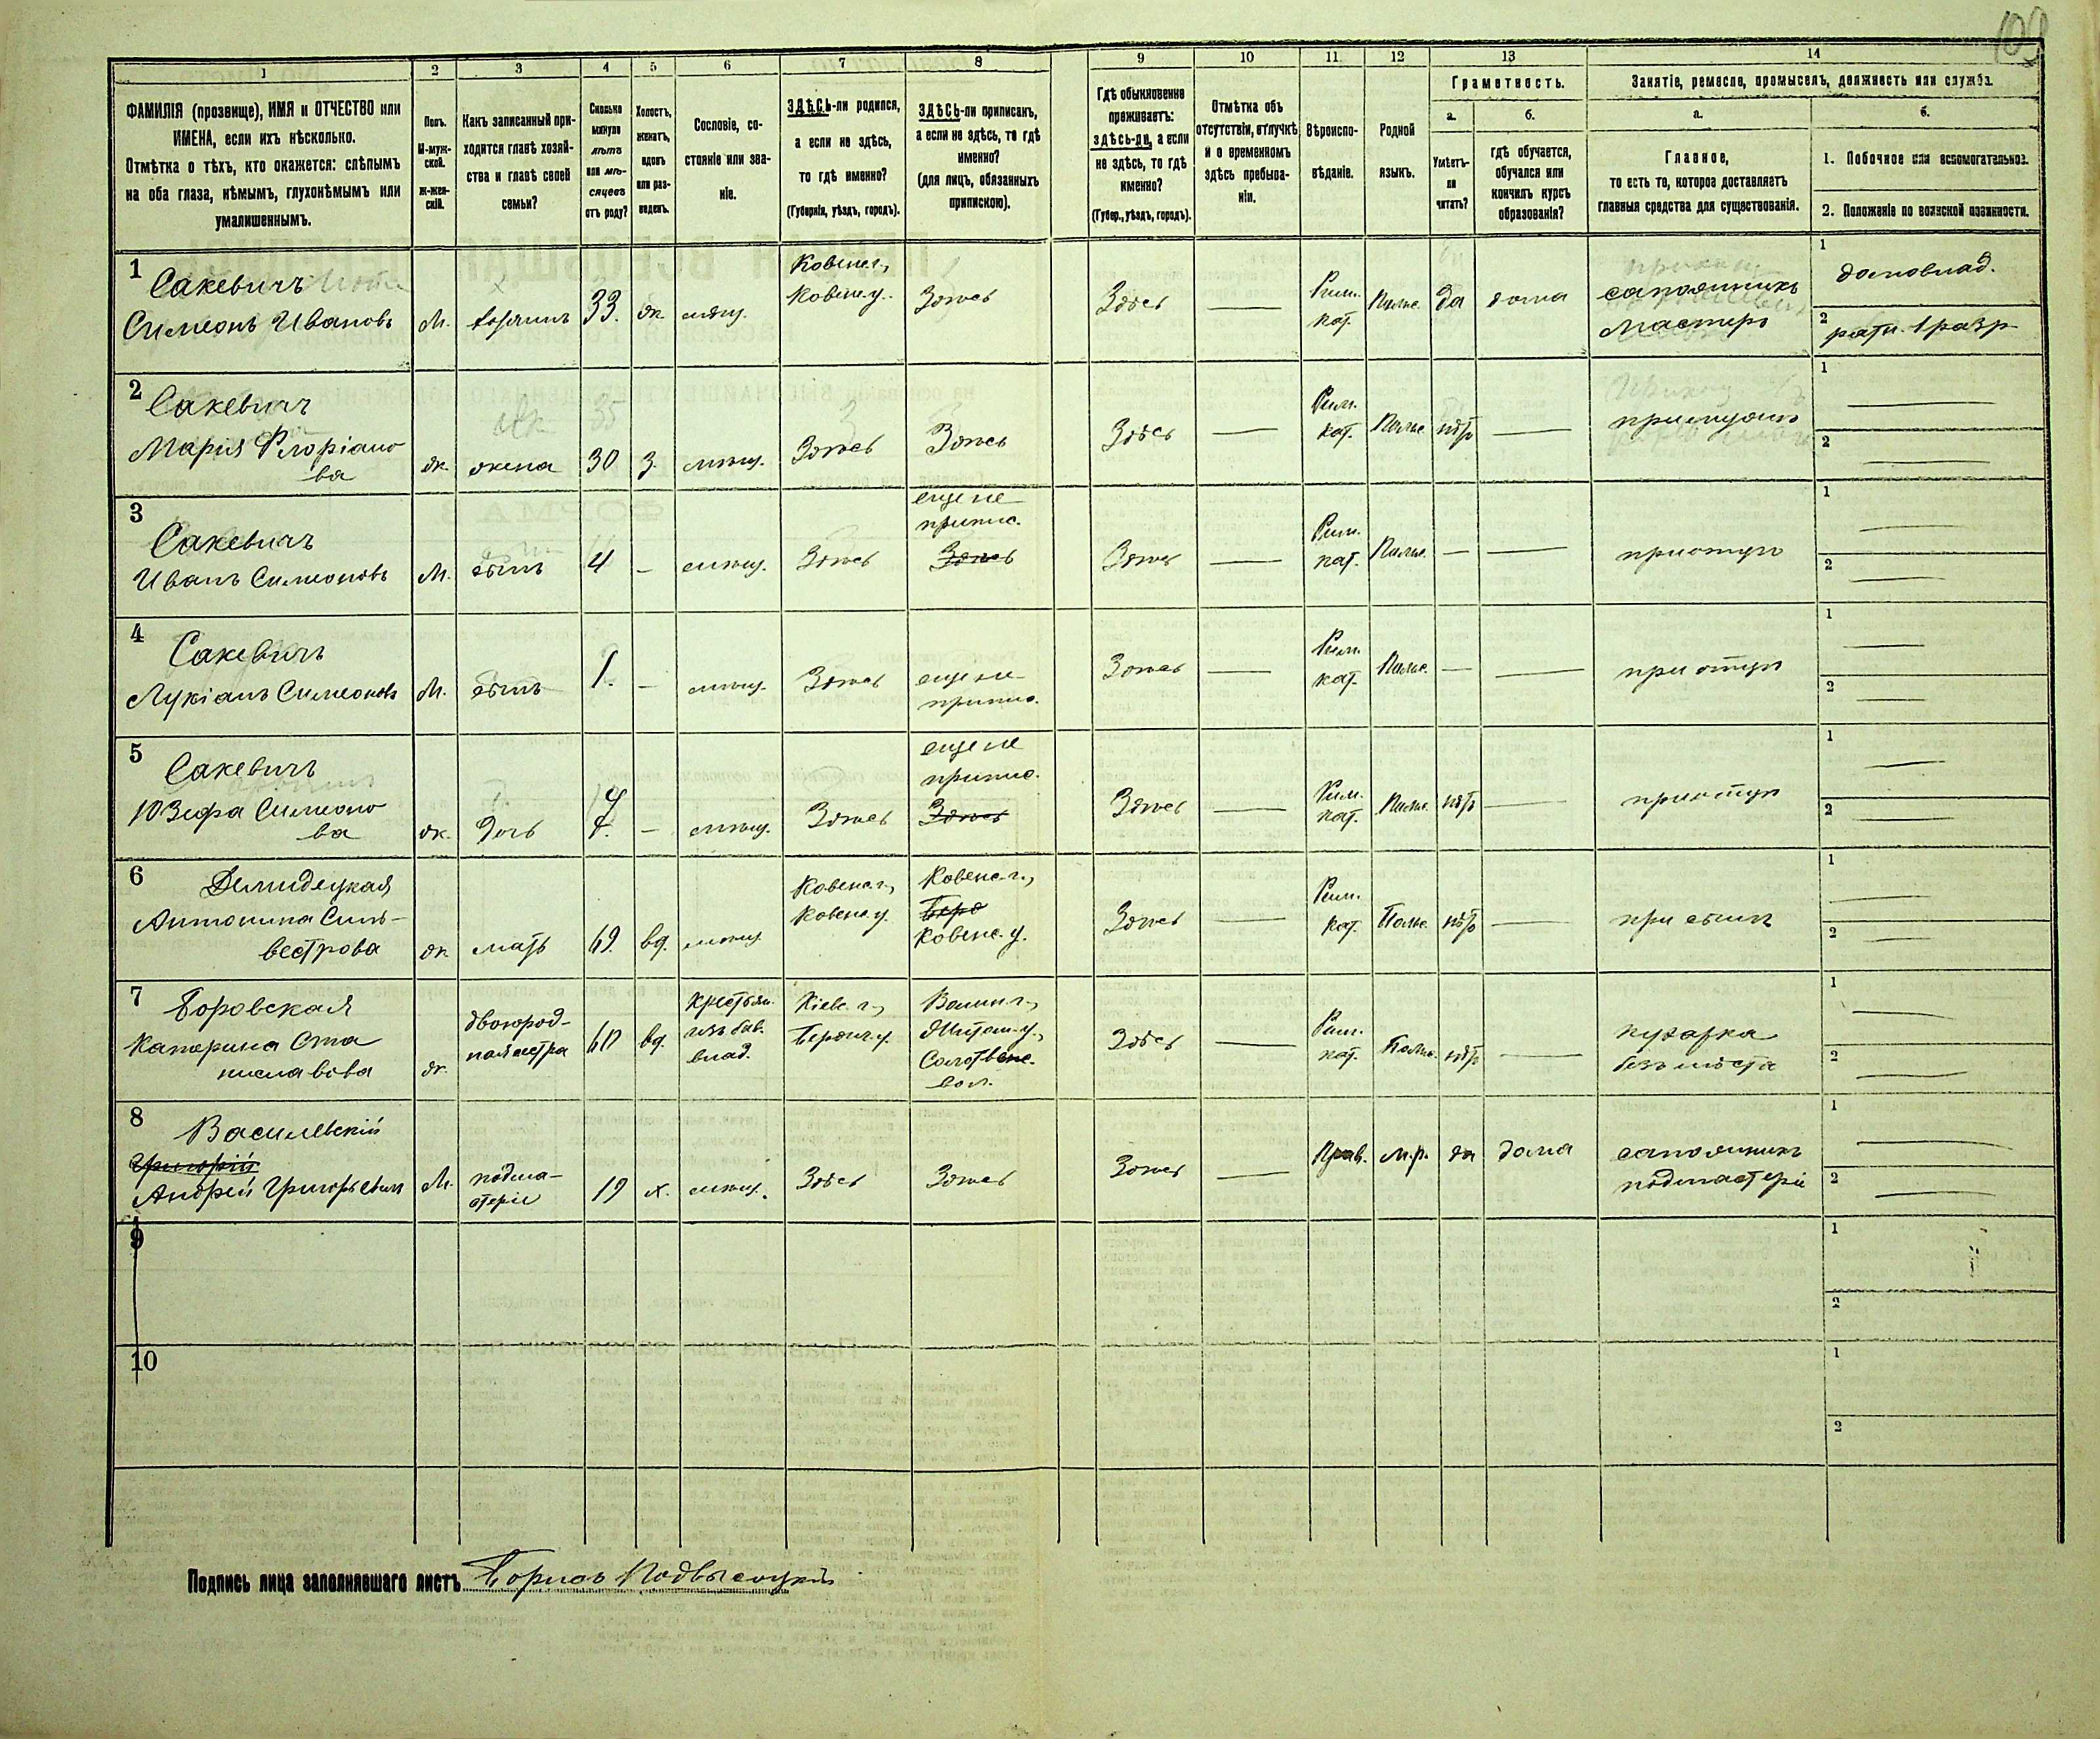 109
1 2 3 4 5 6 7 8 9 10 11 12 13 14
ФАМИЛІЯ (прозвище), ИМЯ и ОТЧЕСТВО или
ИМЕНА, если ихъ нѣсколько.
Отмѣтка о тѣхъ, кто окажется: слѣпымъ
на оба глаза, нѣмымъ, глухонѣмымъ или
умалишеннымъ.
Полъ.
М-муж-
ской.
Ж-жен-
скій.
Какъ записанный при-
ходится главѣ хозяй-
ства и главѣ своей
семьи?
Сколько
минуло
лѣтъ
или мѣ-
сяцевъ
отъ роду?
Холостъ,
женатъ,
вдовъ
или раз-
веденъ.
Сословіе, со-
стояніе или зва-
ніе.
ЗДѢСЬ-ли родился,
а если не здѣсь,
то гдѣ именно?
(Губернія, уѣздъ, городъ).
ЗДѢСЬ-ли приписанъ,
а если не здѣсь, то гдѣ
именно?
(для лицъ, обязанныхъ
припискою).
Гдѣ обыкновенно
проживаетъ:
здѣсь-ли, а если
не здѣсь, то гдѣ
именно?
(Губер., уѣздъ, городъ).
Отмѣтка объ
отсутствіи, отлучкѣ
и о временномъ
здѣсь пребыва-
ніи.
Вѣроиспо-
вѣданіе.
Родной
языкъ.
Грамотность.
а.
Умѣетъ-
ли
читать?
б.
гдѣ обучается,
обучался или
кончилъ курсъ
образованія?
Занятіе, ремесло, промыселъ, должность или служба.
а.
Главное,
то есть то, которое доставляетъ
главныя средства для существованія.
б.
1. Побочное или вспомогательное.
2. Положеніе по воинской повинности.
1
Сакевичъ
Симеонъ Ивановъ
М.
хозяинъ
33.
ж.
мѣщ.
Ковенс. г.,
Ковенс. у.
Здѣсь
Здѣсь
—
Рим.
кат.
Польс.
да
дома
сапожникъ
мастеръ
1
домовлад.
2
ратн. 1 разр.
2
Сакевичъ
Марія Флоріано
ва
ж.
жена
30
з.
мѣщ.
Здѣсь
Здѣсь
Здѣсь
—
Рим.
кат.
Польс.
нѣтъ
—
при мужѣ
1
—
2
—
3
Сакевичъ
Иванъ Симеоновъ
М.
сынъ
4
—
мѣщ.
Здѣсь
еще не
припис.
Здѣсь
Здѣсь
—
Рим.
кат.
Польс.
—
—
при отцѣ
1
—
2
—
4
Сакевичъ
Лукіанъ Симеоновъ
М.
сынъ
1.
—
мѣщ.
Здѣсь
еще не
припис.
Здѣсь
—
Рим.
кат.
Польс.
—
—
при отцѣ
1
—
2
—
5
Сакевичъ
Юзефа Симеоно
ва
ж.
дочь
—
мѣщ.
Здѣсь
еще не
припис.
Здѣсь
Здѣсь
—
Рим.
кат.
Польс.
нѣтъ
—
при отцѣ
1
—
2
—
6
Антонина Силь-
вестрова
ж.
мать
69.
вд.
мѣщ.
Ковенс. г.,
Ковенс. у.
Ковенс. г.,
Ковенс. у.
Здѣсь
—
Рим.
кат.
Польс.
нѣтъ
—
при сынѣ
1
—
2
—
7
Боровская
Катерина Ста
ниславова
ж.
двоюрод-
ная сестра
60
вд.
крестьян.
изъ быв.
влад.
Кіевс. г.,
Бердич. у.
Волын. г.,
Житом. у.,
Солотвенс.
вол.
Здѣсь
—
Рим.
кат.
Польс.
нѣтъ
—
кухарка
безъ мѣста
1
—
2
—
8
Василевскій
Григорій
Андрей Григорьевичъ
М.
подма-
стерье
19
х.
мѣщ.
Здѣсь
Здѣсь
Здѣсь
—
Прав.
м.р.
да
дома
сапожникъ
подмастеріе
1
—
2
—
9
1
2
10
1
2
Подпись лица заполнявшаго листъ Борисъ Подвысоцкій